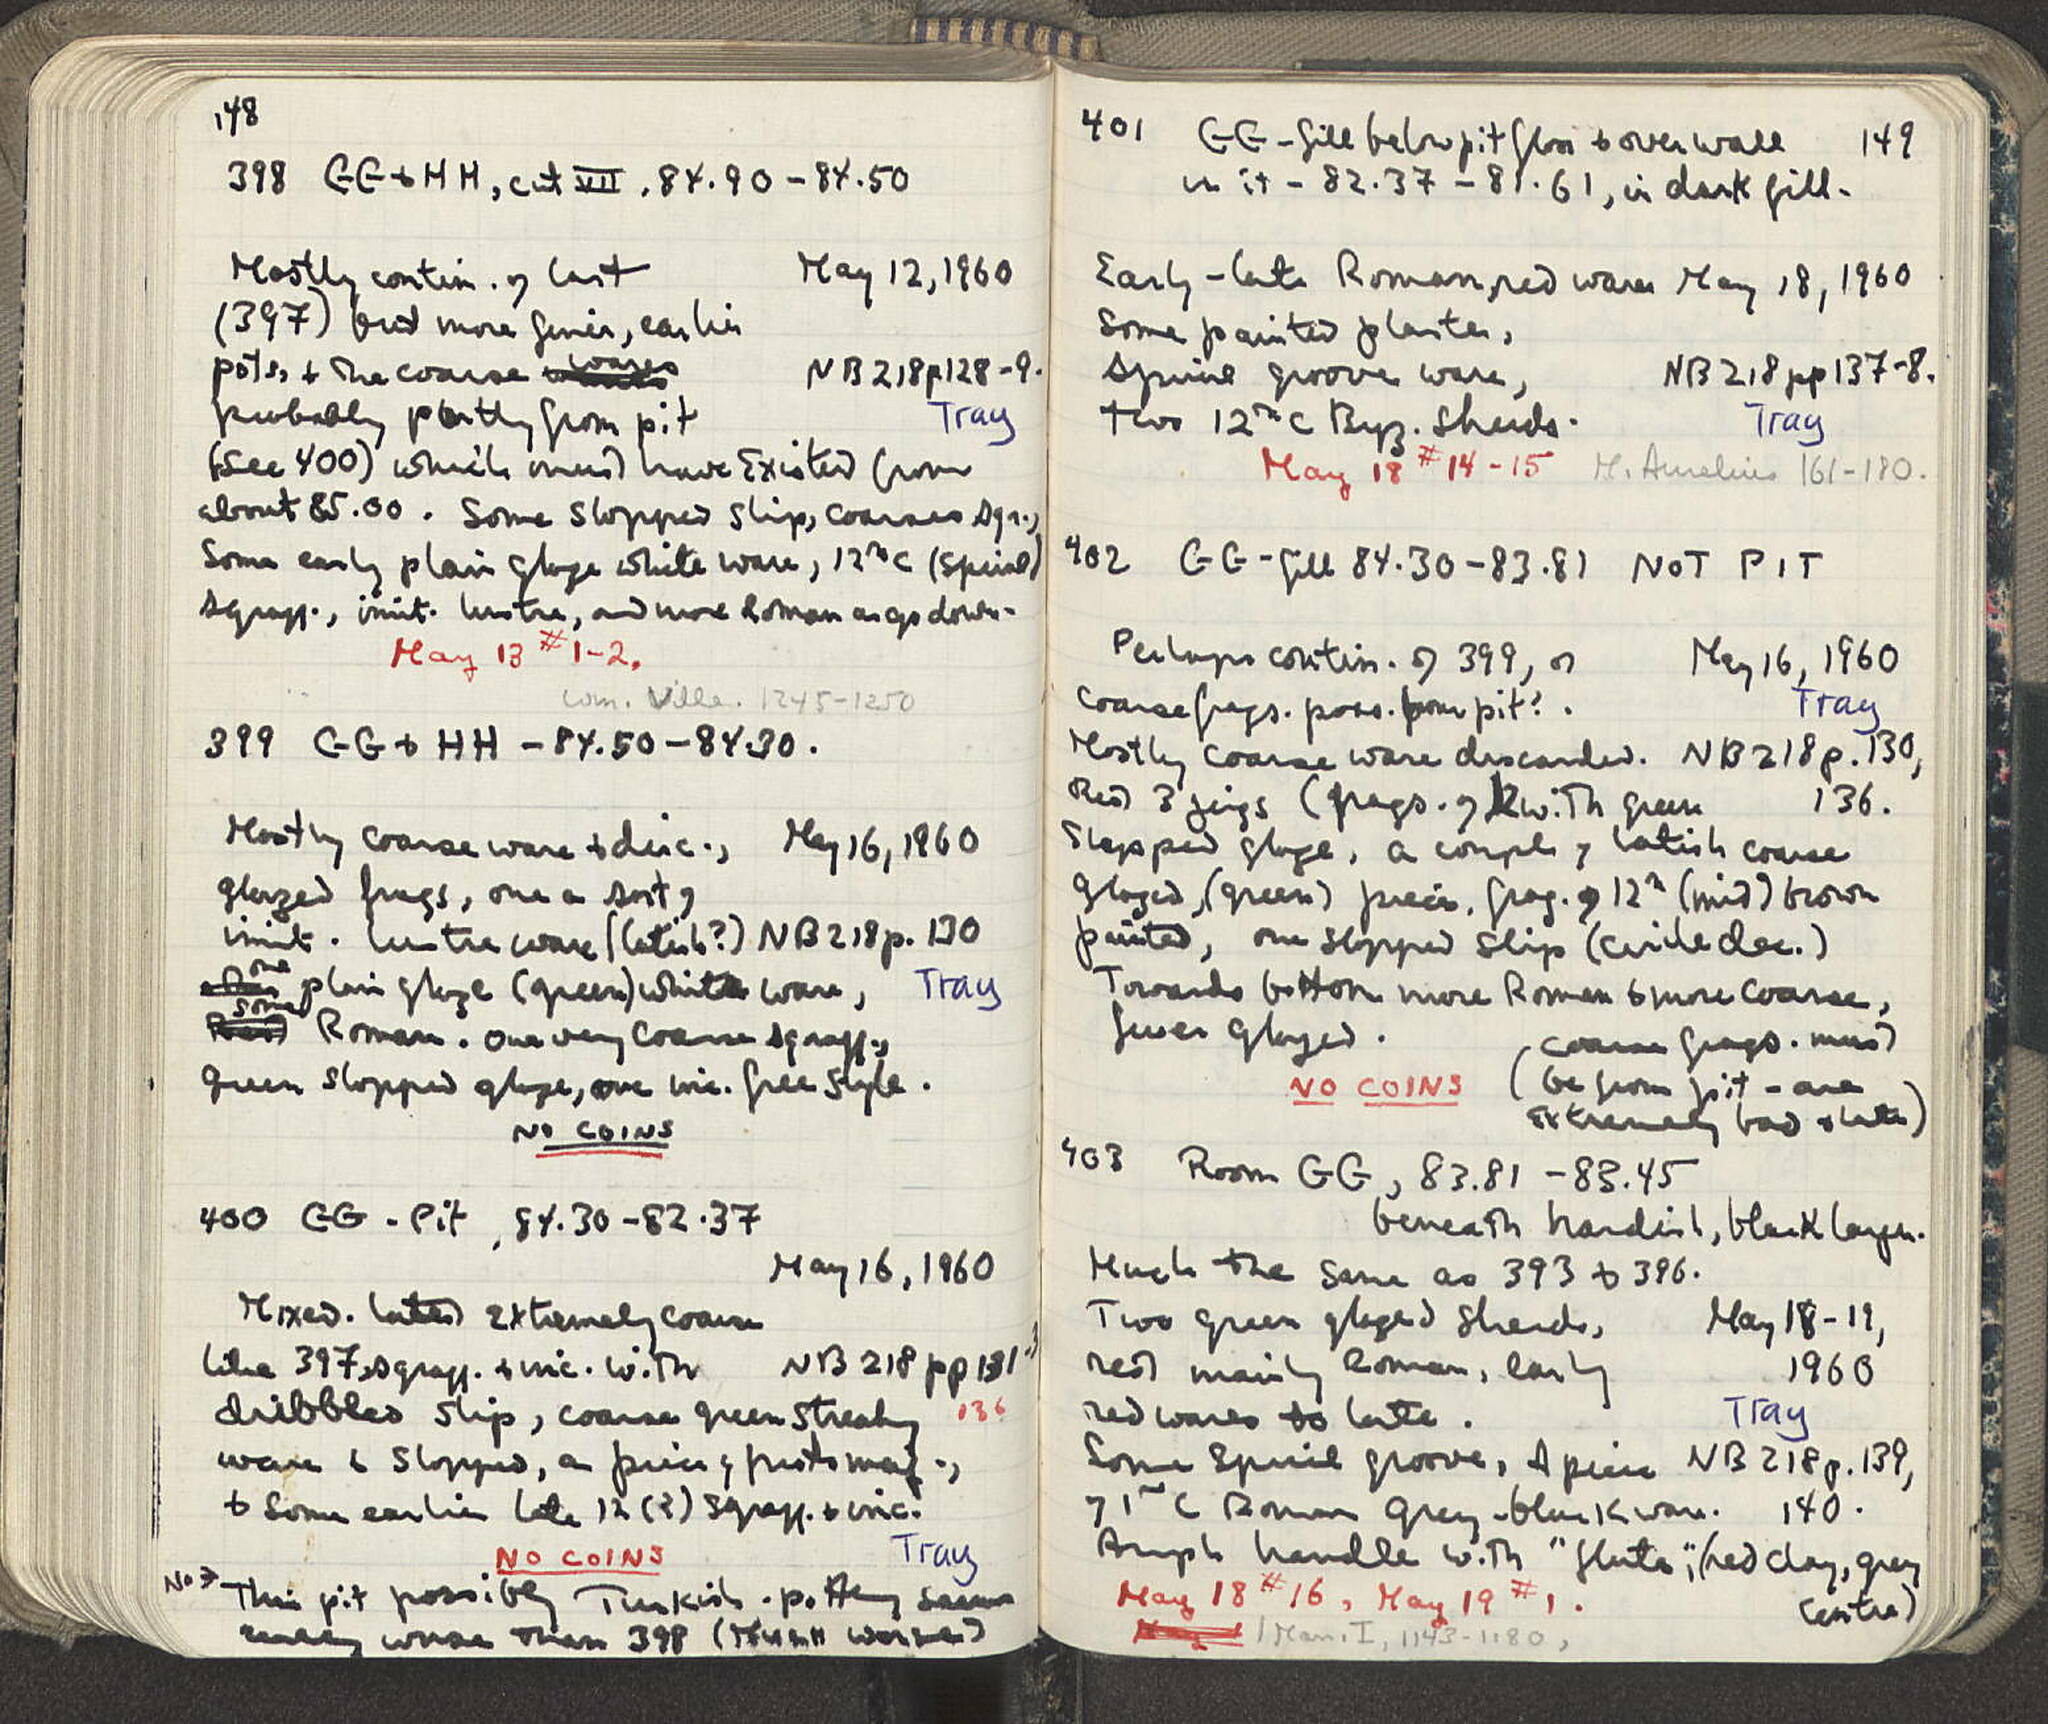 148
398 GG + HH, cut VII, 84.90 - 84.50
Mostly contin. of last May 12, 1960
(397) but more finer, earlier
pots, + the coarse wares NB 218 p 128-9.
probably partly from pit Tray
(see 400) which must have existed from
about 85.00. Some slopped slip, coarse sgr.,
Some early plain glaze white ware, 12th C (spiral)
sgraff., imit. lustre, and more Roman as go down.
May 13 #1-2.
Com. Ville. 1245-1250
399 GG + HH - 84.50 - 84.30.
Mostly coarse ware + disc., May 16, 1960
glazed frags, one a sort of
imit. lustre ware (latish?) NB 218 p. 130
one plain glaze (green) white ware, Tray
some Roman. One very coarse sgraff.,
green slopped glaze, one inc. free style.
NO COINS
400 GG - Pit, 84.30 - 82.37
May 16, 1960
Mixed. latest extremely coarse
like 397, sgraff. + inc. with NB 218 pp 131-3
dribbled slip, coarse green streaky 136
ware + slopped, a piece of proto maj.,
+ some earlier late 12 (?) sgraff. + inc.
NO COINS Tray
No → This pit possibly Turkish - pottery seems
really worse than 398 (Much worse)
401 GG - fill below pit floor + over wall 149
in it - 82.37 - 81.61, in dark fill.
Early - late Roman, red wares May 18, 1960
Some painted plaster,
spiral groove ware, NB 218 pp 137-8.
two 12th C Byz. sherds. Tray
May 18 #14-15 M. Aurelius 161-180.
402 GG - fill 84.30 - 83.81 NOT PIT
Perhaps contin. of 399, or May 16, 1960
coarse frags. poss. from pit?. Tray
Mostly coarse ware discarded. NB 218 p. 130,
Red 3 jugs (frags. of 2 with green 136.
Slopped glaze, a couple of latish coarse
glazed, (green) pieces, frag. of 12th (mid) brown
painted, one slopped slip (circle dec.)
Towards bottom more Roman + more coarse,
fewer glazed.
(coarse frags. must
NO COINS be from pit - are
extremely bad + late)
403 Room GG, 83.81 - 83.45
beneath hardish, black layer.
Much the same as 393 + 396.
Two green glazed sherds, May 18-19,
rest mainly Roman, early 1960
red wares to late. Tray
Some spiral groove, A piece NB 218 p. 139,
of 1st C Roman grey-black ware. 140.
Amph handle with "flute"; (red clay, grey
May 18 #16, May 19 #1. centre)
Man. I, 1143-1180,